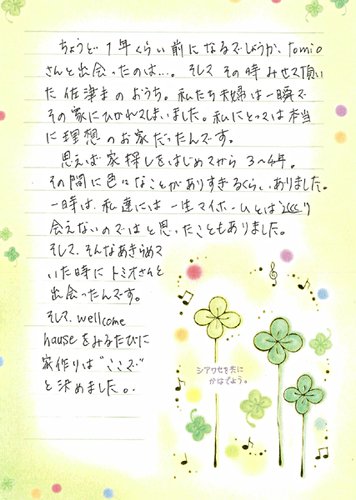 ちょうど1年くらい前になるでしょうか、tomio
さんと出会ったのは…。そして その時みせて頂い
た佐津まのおうち。私たち夫婦は一瞬で
その家にひかれてしまいました。私にとっては本当
に理想のお家だったんです。
思えば家探しをはじめてから 3〜4年。
その間に色々なことがありすぎるくらいありました。
一時は、私達には一生マイホームとはめぐり
会えないのではと思ったこともありました。
そして、そんなあきらめて
いた時にトミオさんと
出会ったんです。
そして、wellcome
hauseをみるたびに
家作りは"ここで"
と決めました。
シアワセを共に
かなでよう。